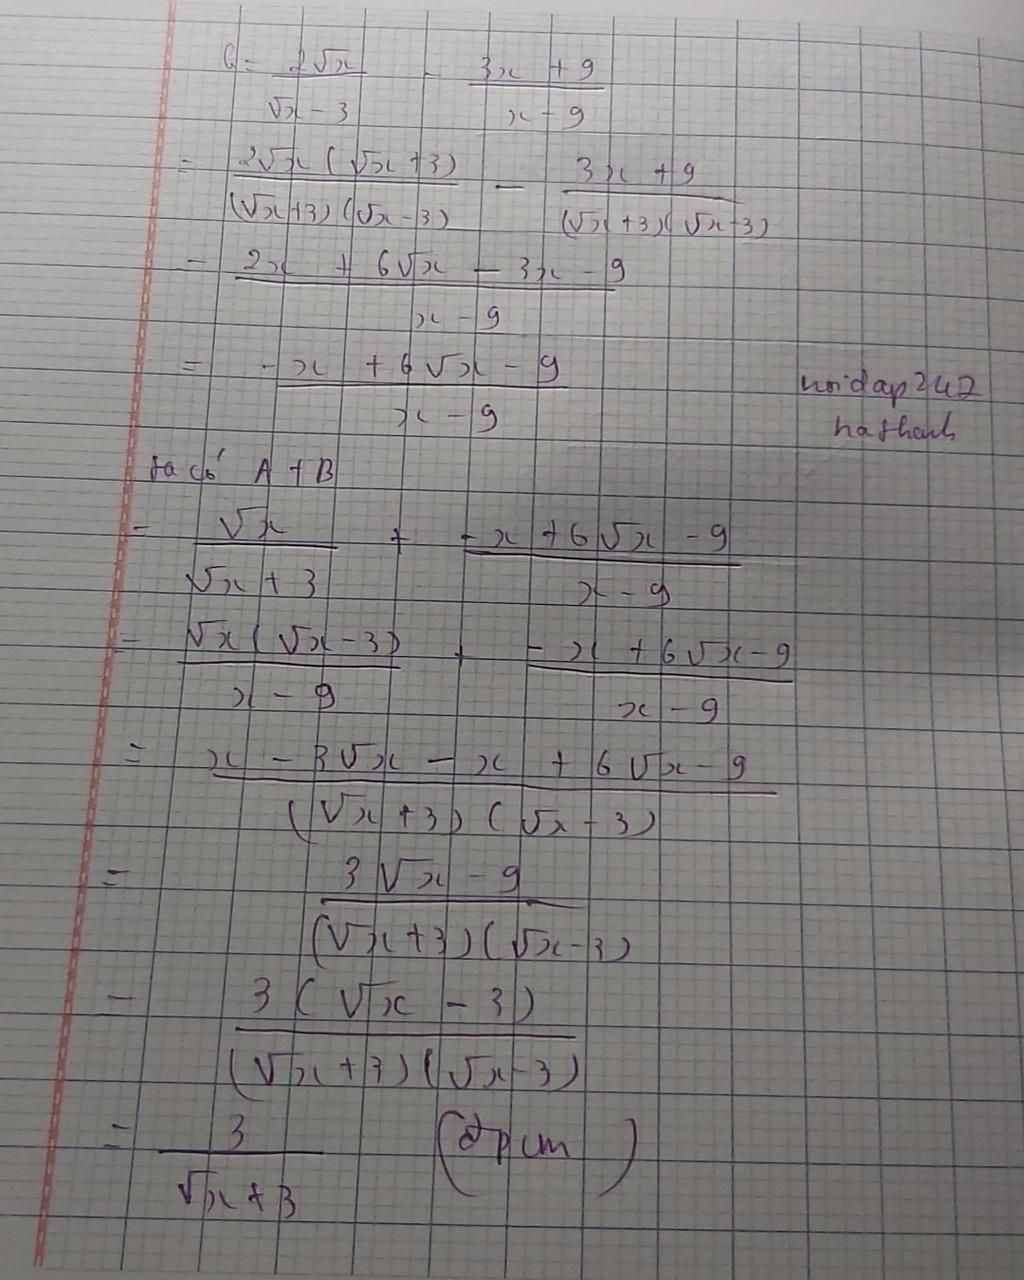 B = 2√x / (√x - 3) - (3x + 9) / (x - 9)
= 2√x(√x + 3) / (√x + 3)(√x - 3) - (3x + 9) / (√x + 3)(√x - 3)
= (2x + 6√x - 3x - 9) / (x - 9)
= (-x + 6√x - 9) / (x - 9)
hoidap247
hathanh
ta có A + B
= √x / (√x + 3) + (-x + 6√x - 9) / (x - 9)
= √x(√x - 3) / (x - 9) + (-x + 6√x - 9) / (x - 9)
= (x - 3√x - x + 6√x - 9) / (√x + 3)(√x - 3)
= (3√x - 9) / (√x + 3)(√x - 3)
= 3(√x - 3) / (√x + 3)(√x - 3)
= 3 / (√x + 3) (đpcm)